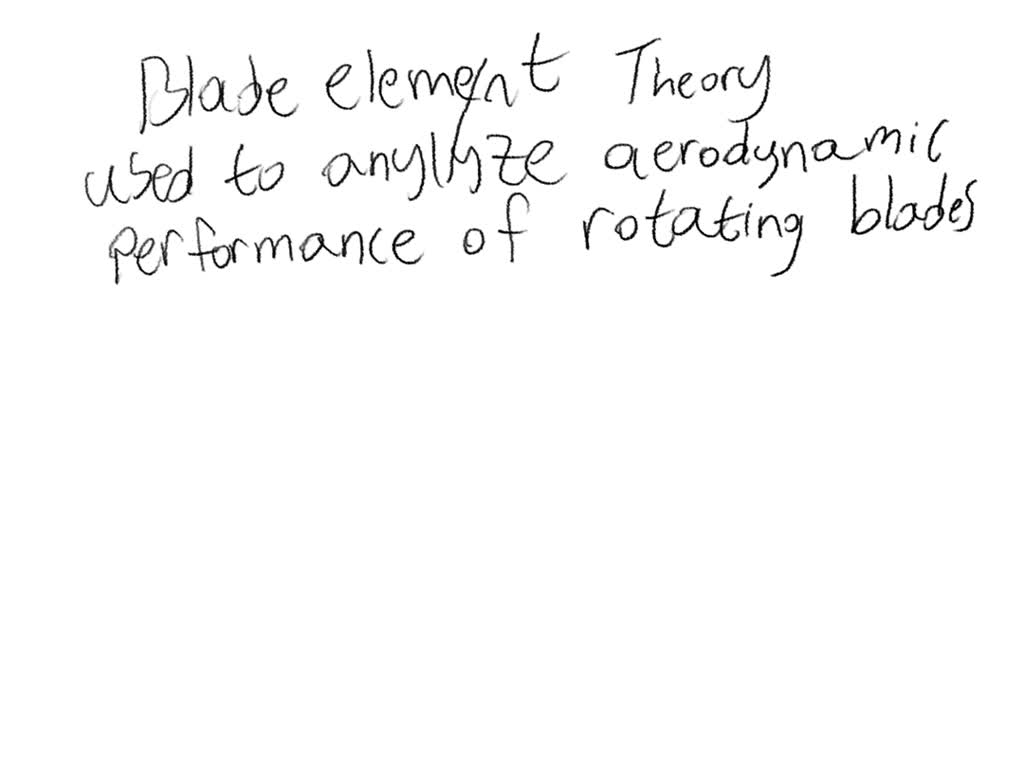 Blade element Theory
used to anylyze aerodynamic
performance of rotating blades